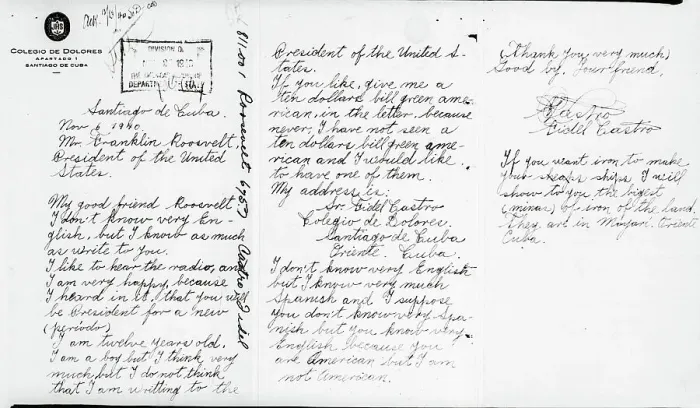 COLEGIO DE DOLORES
APARTADO 1
SANTIAGO DE CUBA
DIVISION OF
DEPARTMENT OF STATE
Santiago de Cuba.
Nov 6 1940.
Mr. Franklin Roosvelt,
President of the United
States.
My good friend Roosvelt
I don't know very En-
glish, but I know as much
as write to you.
I like to hear the radio, and
I am very happy, because
I heard in it, that you will
be President for a new
(periodo)
I am twelve years old.
I am a boy but I think very
much but I do not think
that I am writting to the
811.001 Roosevelt 6757 Castro, Fidel
President of the United S-
tates.
If you like, give me a
ten dollars bill green ame-
rican, in the letter, because
never, I have not seen a
ten dollars bill green ame-
rican and I would like
to have one of them.
My address is:
Sr. Fidel Castro
Colegio de Dolores.
Santiago de Cuba
Oriente. Cuba.
I don't know very English
but I know very much
Spanish and I suppose
you don't know very Spa-
nish but you know very
English because you
are American but I am
not American.
(Thank you very much)
Good by. Your friend,
Castro
Fidel Castro
If you want iron to make
your sheaps ships I will
show to you the bigest
(minas) of iron of the land.
They are in Mayari. Oriente
Cuba.